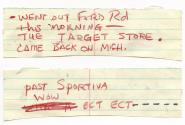 - WENT OUT FORD Rd
THIS MORNING —
THE TARGET STORE.
CAME BACK ON MICH.
PAST Sportiva
WOW
ECT ECT - - - - - -